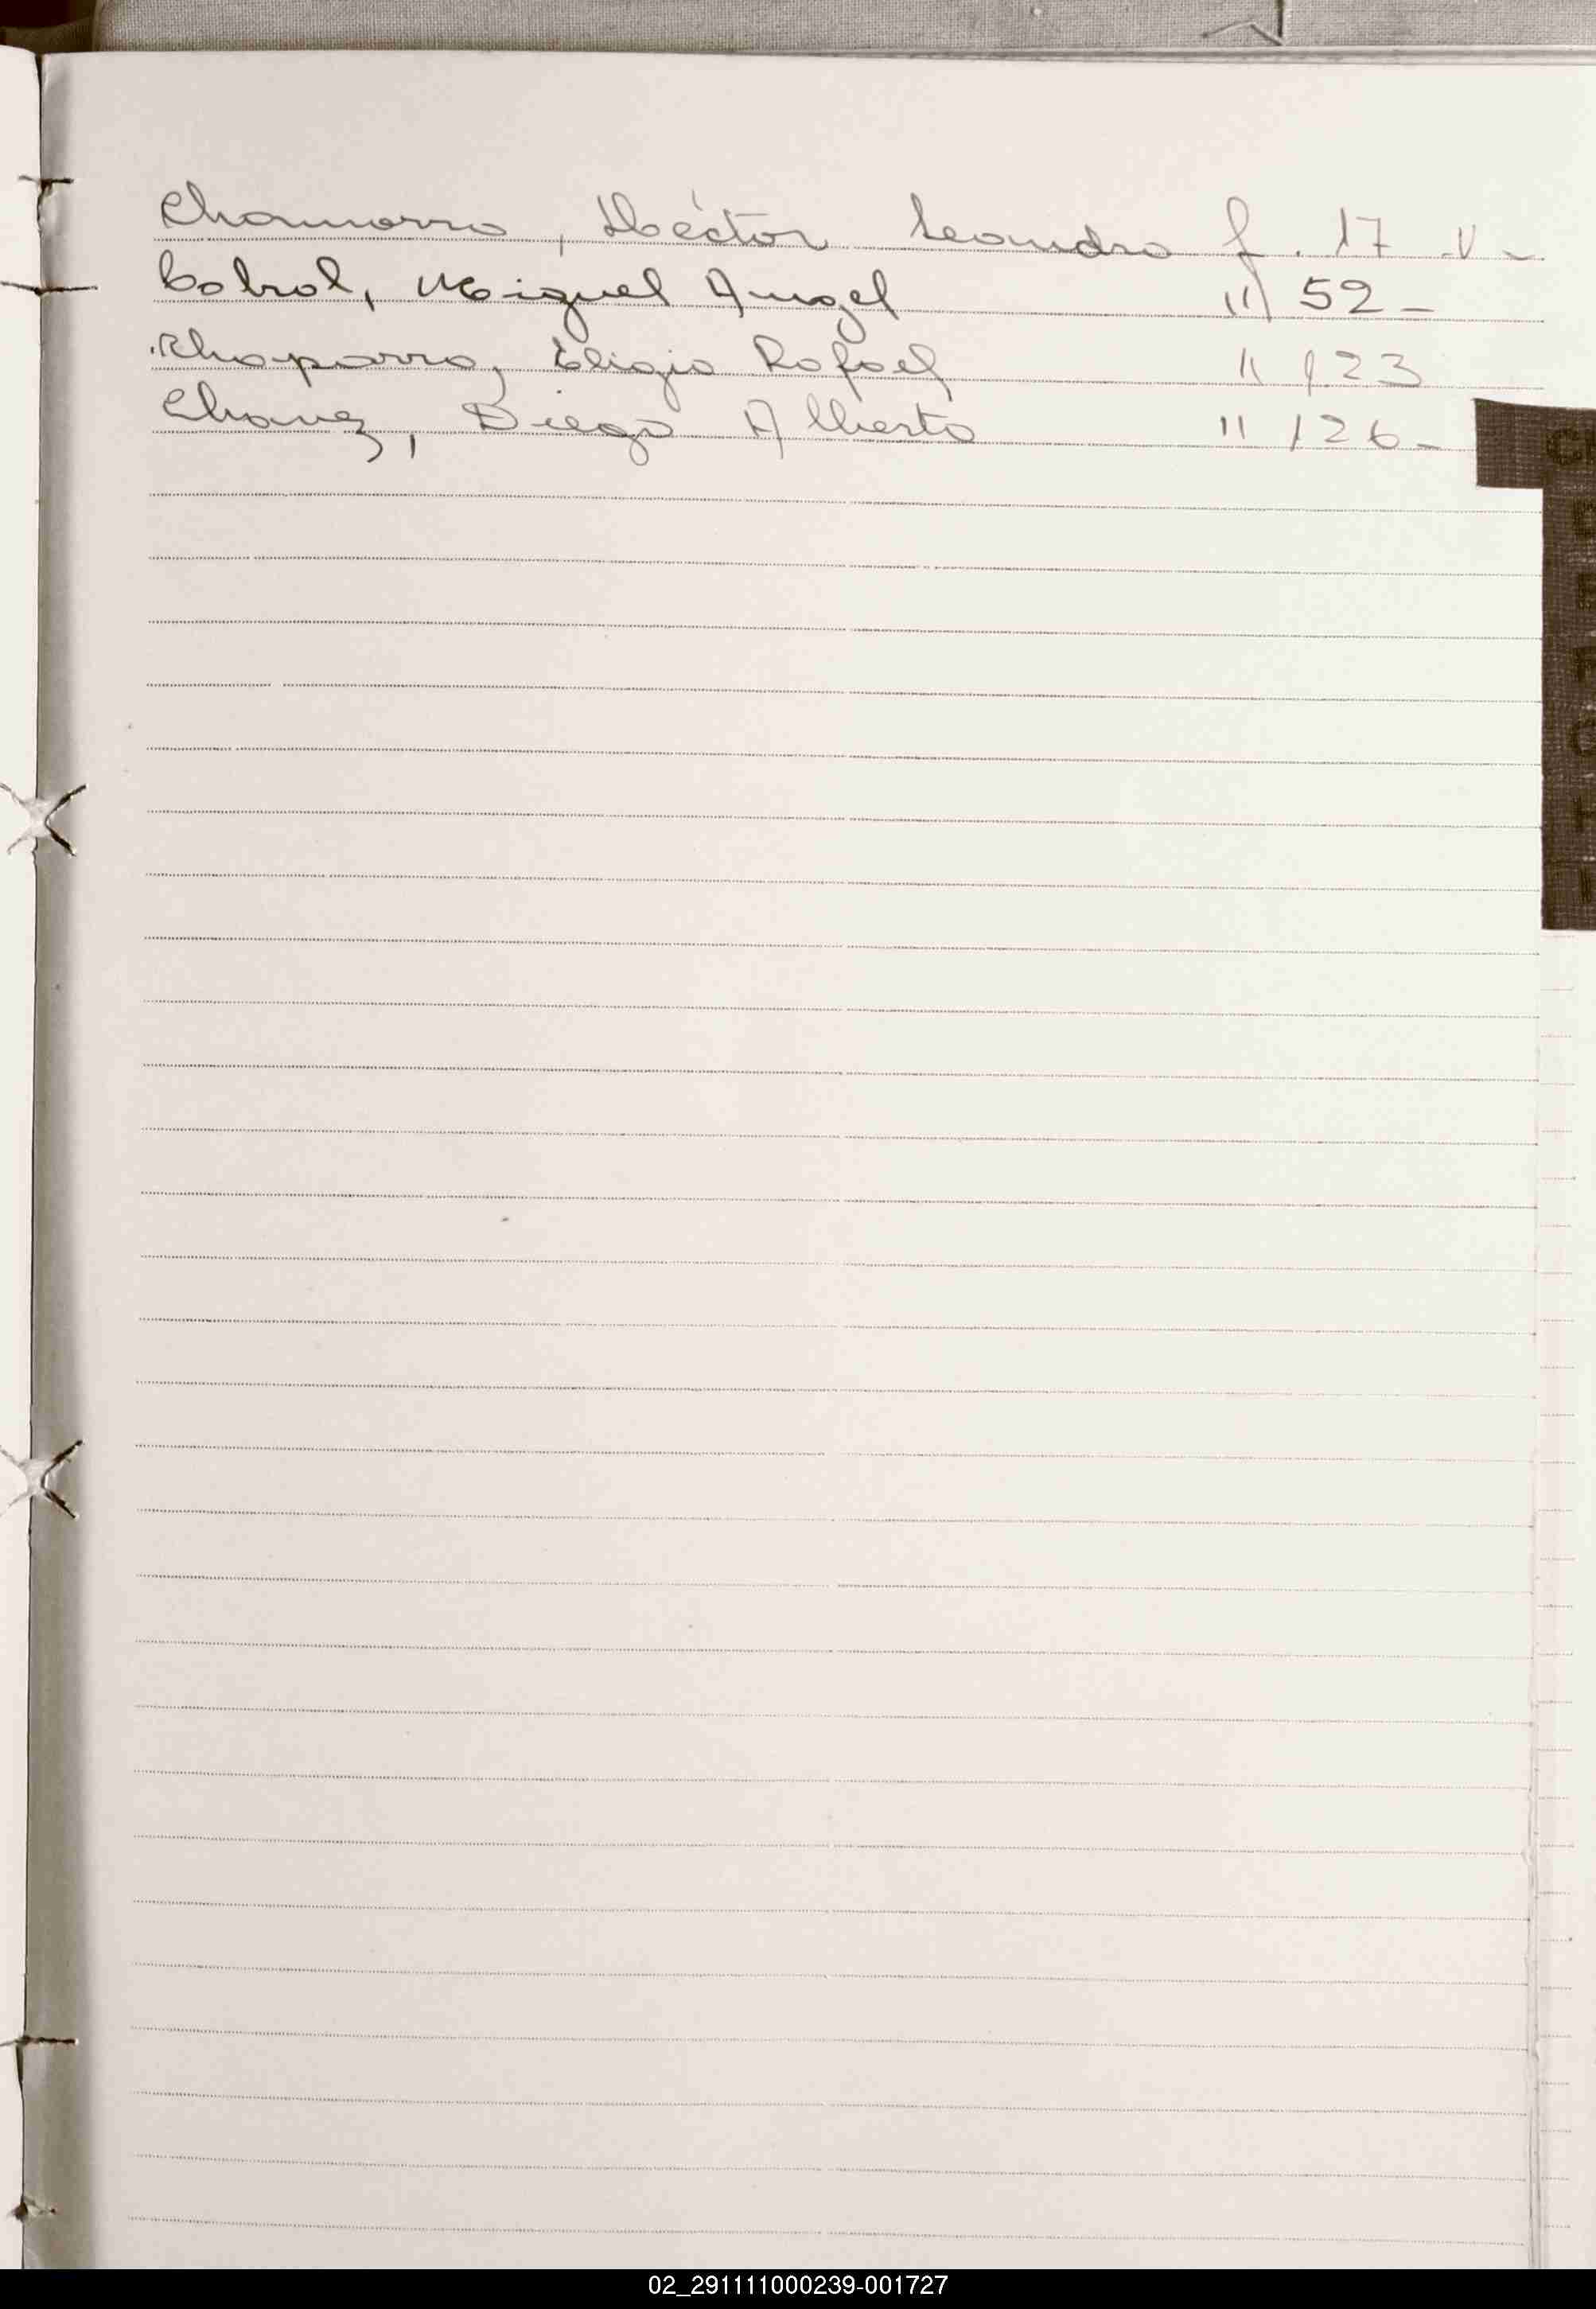 Chamorro, Héctor Leandro f. 17 v-
Cabral, Miguel Angel " 52-
Chaparro, Eligio Rafael " 123
Chavez, Diego Alberto " 126-
02_291111000239-001727